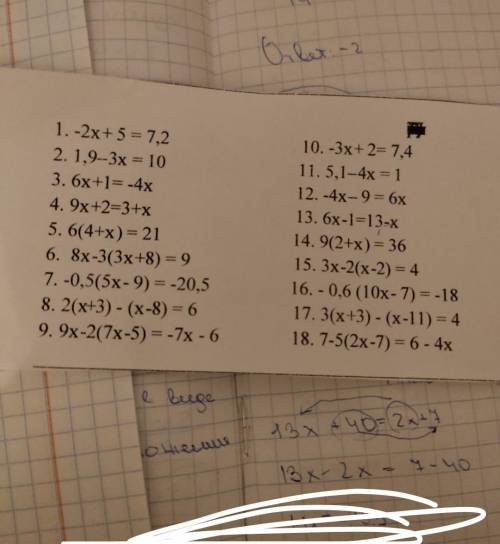 Ответ -2
1. -2x+ 5 = 7,2
2. 1,9--3x = 10
3. 6x+1= -4x
4. 9x+2=3+x
5. 6(4+x) = 21
6. 8x-3(3x+8) = 9
7. -0,5(5x- 9) = -20,5
8. 2(x+3) - (x-8) = 6
9. 9x-2(7x-5) = -7x - 6
10. -3x+ 2= 7,4
11. 5,1–4x = 1
12. -4x– 9 = 6x
13. 6x-1=13-x
14. 9(2+x) = 36
15. 3x-2(x-2) = 4
16. - 0,6 (10x- 7) = -18
17. 3(x+3) - (x-11) = 4
18. 7-5(2x-7) = 6 - 4x
в виде
13x + 40 = 2x+7
13x - 2x = 7-40